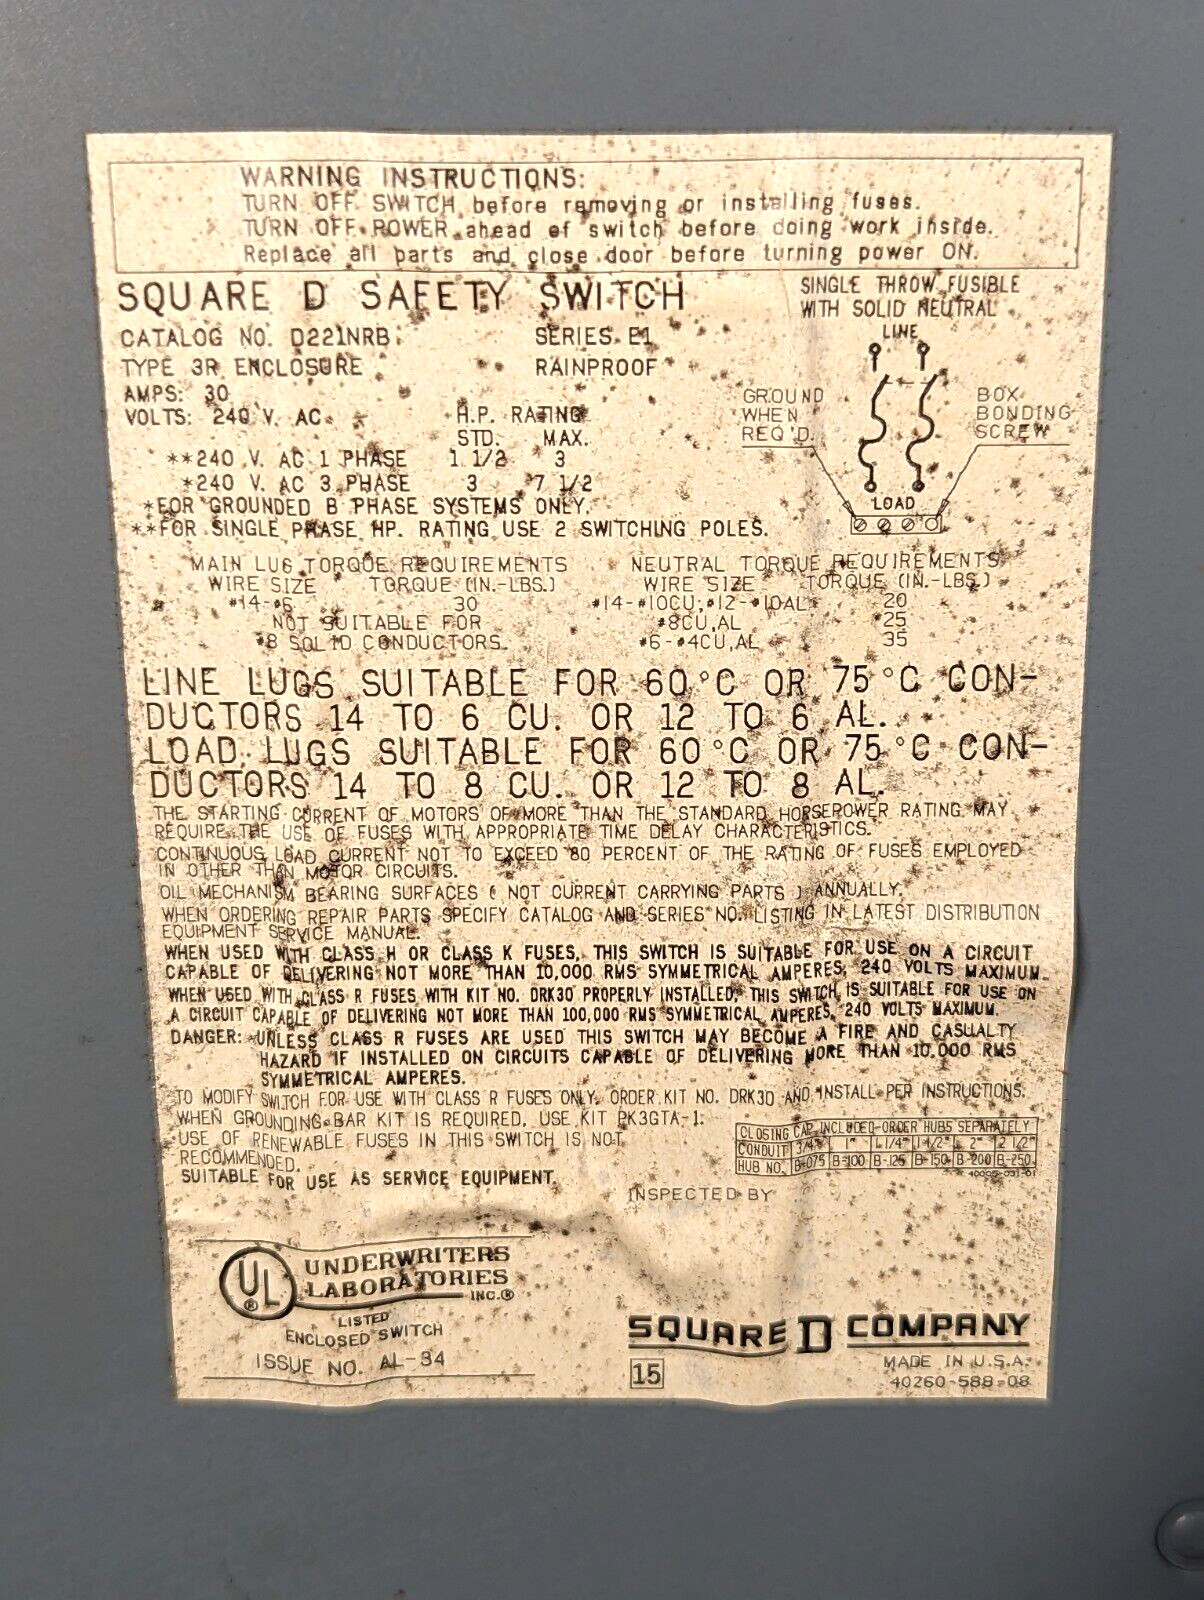 WARNING INSTRUCTIONS:
TURN OFF SWITCH before removing or installing fuses.
TURN OFF POWER ahead of switch before doing work inside.
Replace all parts and close door before turning power ON.
SQUARE D SAFETY SWITCH
CATALOG NO. D221NRB
SERIES E1
TYPE 3R ENCLOSURE
RAINPROOF
AMPS: 30
VOLTS: 240 V. AC
H.P. RATING
STD. MAX.
**240 V. AC 1 PHASE 1 1/2 3
*240 V. AC 3 PHASE 3 7 1/2
*FOR GROUNDED B PHASE SYSTEMS ONLY.
**FOR SINGLE PHASE HP. RATING USE 2 SWITCHING POLES.
SINGLE THROW FUSIBLE
WITH SOLID NEUTRAL
LINE
GROUND
WHEN
REQ'D.
BOX
BONDING
SCREW
LOAD
MAIN LUG TORQUE REQUIREMENTS
WIRE SIZE TORQUE (IN.-LBS.)
#14-#6 30
NOT SUITABLE FOR
#8 SOLID CONDUCTORS
NEUTRAL TORQUE REQUIREMENTS
WIRE SIZE TORQUE (IN.-LBS.)
#14-#10CU,#12-#10AL 20
#8CU,AL 25
#6-#4CU,AL 35
LINE LUGS SUITABLE FOR 60°C OR 75°C CON-
DUCTORS 14 TO 6 CU. OR 12 TO 6 AL.
LOAD LUGS SUITABLE FOR 60°C OR 75°C CON-
DUCTORS 14 TO 8 CU. OR 12 TO 8 AL.
THE STARTING CURRENT OF MOTORS OF MORE THAN THE STANDARD HORSEPOWER RATING MAY
REQUIRE THE USE OF FUSES WITH APPROPRIATE TIME DELAY CHARACTERISTICS.
CONTINUOUS LOAD CURRENT NOT TO EXCEED 80 PERCENT OF THE RATING OF FUSES EMPLOYED
IN OTHER THAN MOTOR CIRCUITS.
OIL MECHANISM BEARING SURFACES ( NOT CURRENT CARRYING PARTS ) ANNUALLY.
WHEN ORDERING REPAIR PARTS SPECIFY CATALOG AND SERIES NO. LISTING IN LATEST DISTRIBUTION
EQUIPMENT SERVICE MANUAL.
WHEN USED WITH CLASS H OR CLASS K FUSES, THIS SWITCH IS SUITABLE FOR USE ON A CIRCUIT
CAPABLE OF DELIVERING NOT MORE THAN 10,000 RMS SYMMETRICAL AMPERES, 240 VOLTS MAXIMUM.
WHEN USED WITH CLASS R FUSES WITH KIT NO. DRK30 PROPERLY INSTALLED, THIS SWITCH IS SUITABLE FOR USE ON
A CIRCUIT CAPABLE OF DELIVERING NOT MORE THAN 100,000 RMS SYMMETRICAL AMPERES, 240 VOLTS MAXIMUM.
DANGER: UNLESS CLASS R FUSES ARE USED THIS SWITCH MAY BECOME A FIRE AND CASUALTY
HAZARD IF INSTALLED ON CIRCUITS CAPABLE OF DELIVERING MORE THAN 10,000 RMS
SYMMETRICAL AMPERES.
TO MODIFY SWITCH FOR USE WITH CLASS R FUSES ONLY, ORDER KIT NO. DRK30 AND INSTALL PER INSTRUCTIONS.
WHEN GROUNDING BAR KIT IS REQUIRED, USE KIT PK3GTA-1.
USE OF RENEWABLE FUSES IN THIS SWITCH IS NOT
RECOMMENDED.
SUITABLE FOR USE AS SERVICE EQUIPMENT.
CLOSING CAP INCLUDED-ORDER HUBS SEPARATELY
CONDUIT 3/4" 1" 1 1/4" 1 1/2" 2" 2 1/2"
HUB NO. B-075 B-100 B-125 B-150 B-200 B-250
40005-031-01
INSPECTED BY
UL ®
UNDERWRITERS
LABORATORIES
INC.®
LISTED
ENCLOSED SWITCH
ISSUE NO. AL-34
SQUARE D COMPANY
15
MADE IN U.S.A.
40260-588-08